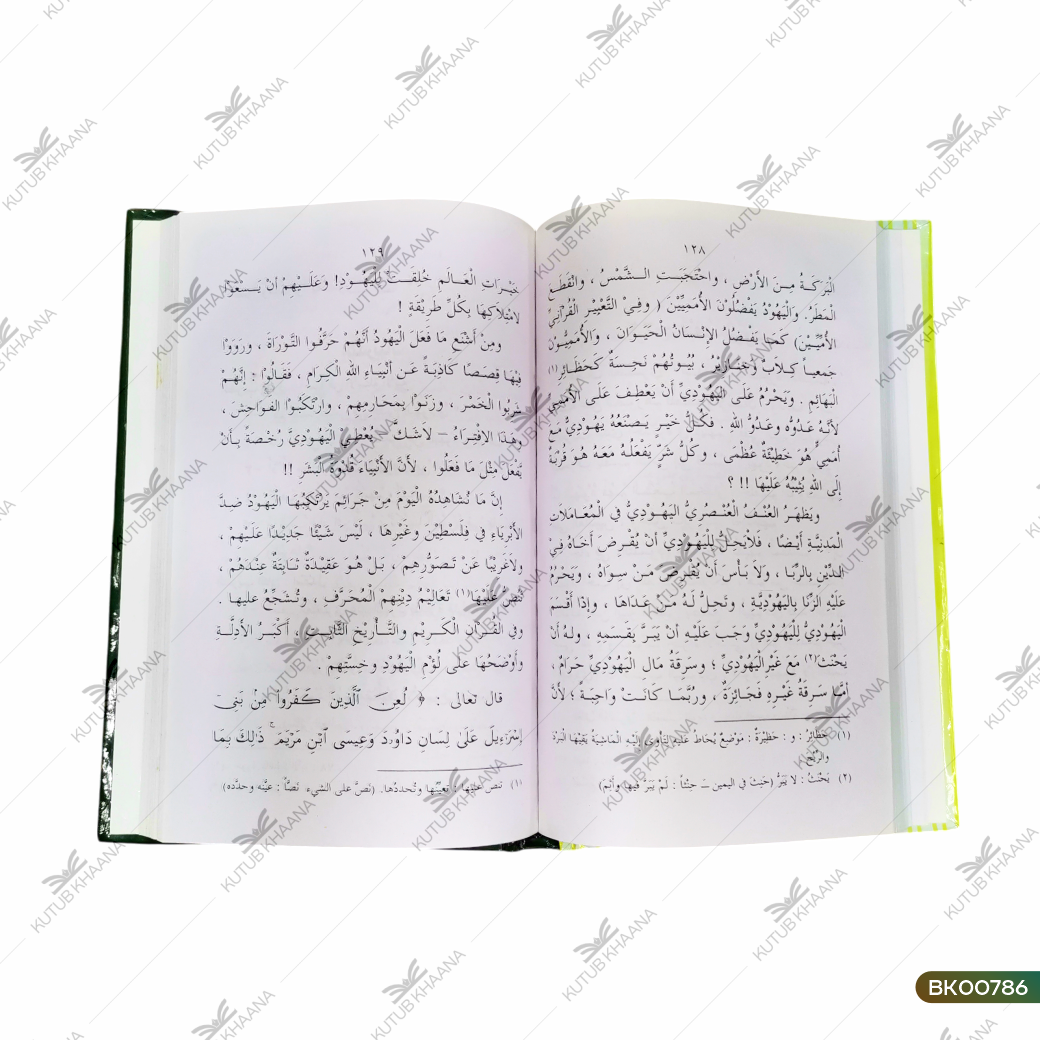 ١٢٨
الْبَرَكَةُ مِنَ الأَرْضِ ، واحْتَجَبَتِ الشَّمْسُ ، وانْقَطَعَ
الْمَطَرُ. وَالْيَهُوْدُ يَفْضُلُوْنَ الأُمَمِيِّيْنَ ( وفِيْ التَّعْبِيْرِ القُرْآنِيْ
الأُمِّيِّيْنَ) كَمَا يَفْضُلُ الإِنْسَانُ الْحَيَوَانَ ، وَالأُمَمِيُّوْنَ
جَمِيعاً كِلَابٌ وَخَنَازِيْرُ ، بُيُوتُهُمْ نَجِسَةٌ كَحَظَائِرِ(١)
الْبَهَائِمِ . وَيَحْرُمُ عَلَى الْيَهُوْدِيِّ أَنْ يَعْطِفَ عَلَى الأُمَمِيِّ
لأَنَّهُ عَدُوُّهُ وعَدُوُّ اللهِ . فَكُلُّ خَيْرٍ يَصْنَعُهُ يَهُوْدِيٌّ مَعَ
أُمَمِيٍّ هُوَ خَطِيْئَةٌ عُظْمَى ، وَكُلُّ شَرٍّ يَفْعَلُهُ مَعَهُ هُوَ قُرْبَةٌ
إِلَى اللهِ يُثِيْبُهُ عَلَيْهَا !! ؟
ويَظْهَرُ العُنْفُ الْعُنْصُرِيُّ اليَهُوْدِيُّ فِي الْمُعَامَلاَتِ
الْمَدَنِيَّةِ أَيْضًا ، فَلاَيَحِلُّ لِلْيَهُوْدِيِّ أَنْ يُقْرِضَ أَخَاهُ فِيْ
الدِّيْنِ بِالرِّبَا ، وَلاَ بَأْسَ أَنْ يُقْرِضَ مَنْ سِوَاهُ ، وَيَحْرُمُ
عَلَيْهِ الزِّنَا بِاليَهُوْدِيَّةِ ، وَتَحِلُّ لَهُ مَنْ عَدَاهَا ، وإِذَا أَقْسَمَ
الْيَهُوْدِيُّ لِلْيَهُوْدِيِّ وَجَبَ عَلَيْهِ أَنْ يَبَرَّ بِقَسَمِهِ ، ولَهُ أَنْ
يَحْنَثَ(٢) مَعَ غَيْرِ الْيَهُوْدِيِّ ؛ وسَرِقَةُ مَالِ الْيَهُوْدِيِّ حَرَامٌ ،
أَمَّا سَرِقَةُ غَيْرِهِ فَجَائِزَةٌ ، ورُبَّمَا كَانَتْ وَاجِبَةً ؛ لأَنَّ
(١) حَظَائِرُ : و : حَظِيْرَةٌ : مَوْضِعٌ يُحَاطُ عَلَيْهِ لِتَأْوِيَ إِلَيْهِ الْمَاشِيَةُ يَقِيْهَا الْبَرْدَ
والرِّيْحَ
(٢) يَحْنَثُ : لا يَبَرُّ (حَنِثَ في اليمين ــ حِنْثاً : لَمْ يَبَرَّ فيها وأَثِمَ)
١٢٩
خَيْرَاتِ الْعَالَمِ خُلِقَتْ لِلْيَهُوْدِ! وَعَلَيْهِمْ أَنْ يَسْعَوْا
لامْتِلاَكِهَا بِكُلِّ طَرِيْقَةٍ !
ومِنْ أَشْنَعِ مَا فَعَلَ الْيَهُودُ أَنَّهُمْ حَرَّفُوا التَّوْرَاةَ ، ورَوَوْا
فِيْهَا قِصَصًا كَاذِبَةً عَنْ أَنْبِيَاءِ اللهِ الْكِرَامِ ، فَقَالُوْا : إِنَّهُمْ
شَرِبُوا الْخَمْرَ ، وزَنَوْا بِمَحَارِمِهِمْ ، وارْتَكَبُوْا الفَوَاحِشَ ،
وهَذَا الاِفْتِرَاءُ – لاَشَكَّ – يُعْطِي الْيَهُوْدِيَّ رُخْصَةً بِأَنْ
يَفْعَلَ مِثْلَ مَا فَعَلُوا ، لأَنَّ الأَنْبِيَاءَ قُدْوَةُ الْبَشَرِ !!
إِنَّ مَا نُشَاهِدُهُ اليَوْمَ مِنْ جَرَائِمَ يَرْتَكِبُهَا الْيَهُوْدُ ضِدَّ
الأَبْرِيَاءِ فِي فِلَسْطِيْنَ وغَيْرِهَا ، لَيْسَ شَيْئًا جَدِيْدًا عَلَيْهِمْ ،
ولاغَرِيْبًا عَنْ تَصَوُّرِهِمْ ، بَلْ هُوَ عَقِيْدَةٌ ثَابِتَةٌ عِنْدَهُمْ ،
تَنُصُّ عَلَيْهَا(١) تَعَالِيْمُ دِيْنِهِمْ الْمُحَرَّفِ ، وتُشَجِّعُ عليها .
وفِي الْقُرْآنِ الْكَرِيْمِ والتَّأْرِيْخِ الثَّابِتِ ، أَكْبَرُ الأَدِلَّةِ
وأَوْضَحُهَا عَلَى لُؤْمِ الْيَهُودِ وخِسَّتِهِمْ .
قال تعالى : ﴿ لُعِنَ ٱلَّذِينَ كَفَرُوا۟ مِنۢ بَنِىٓ
إِسْرَٰٓءِيلَ عَلَىٰ لِسَانِ دَاوُۥدَ وَعِيسَى ٱبْنِ مَرْيَمَ ۚ ذَٰلِكَ بِمَا
(١) تَنُصُّ عَلَيْهَا : تُعَيِّنُها وتُحدِّدُها. (نَصَّ على الشيء نَصًّا : عيَّنه وحدَّده)
KUTUB KHAANA
BK00786